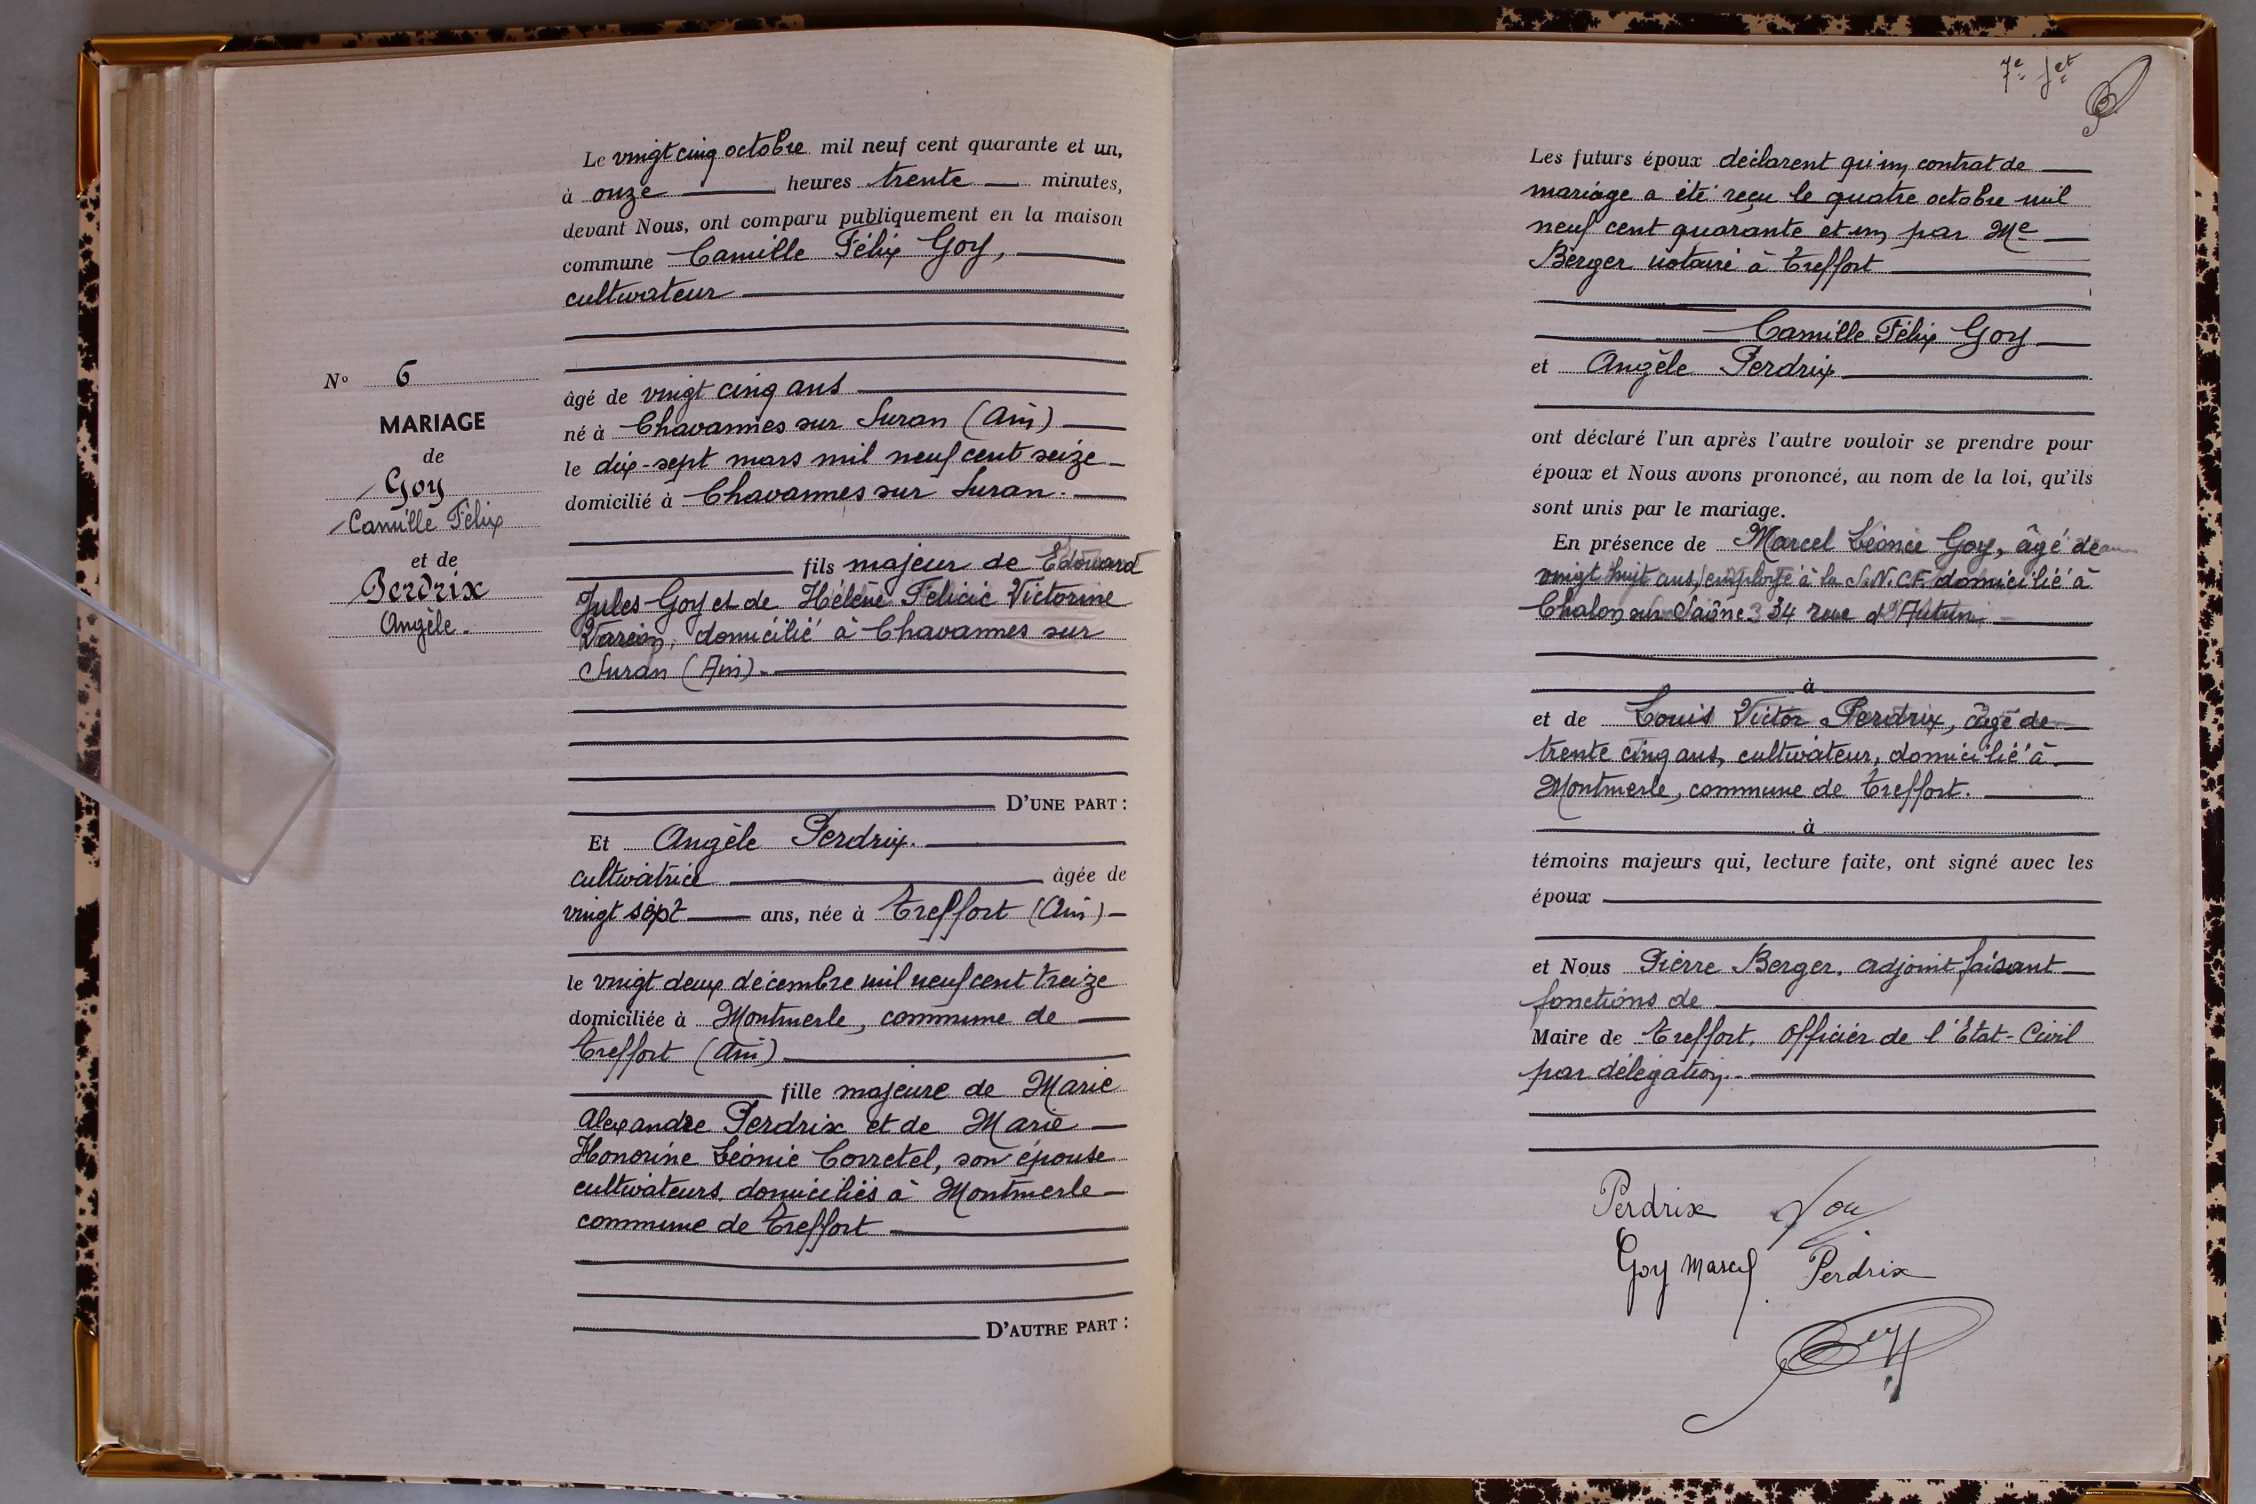 N° 6
MARIAGE
de
Goy
Camille Félix
et de
Perdrix
Angèle.
Le vingt cinq octobre mil neuf cent quarante et un,
à onze heures trente minutes,
devant Nous, ont comparu publiquement en la maison
commune Camille Félix Goy,
cultivateur
âgé de vingt cinq ans
né à Chavannes sur Suran (Ain)
le dix-sept mars mil neuf cent seize
domicilié à Chavannes sur Suran.
fils majeur de Edouard
Jules Goy et de Hélène Félicie Victorine
domicilié à Chavannes sur
Suran (Ain).
D'UNE PART :
Et Angèle Perdrix.
cultivatrice âgée de
vingt sept ans, née à Treffort (Ain)
le vingt deux décembre mil neuf cent treize
domiciliée à Montmerle, commune de
Treffort (Ain)
fille majeure de Marie
Alexandre Perdrix et de Marie
Honorine Léonie Corretel, son épouse
cultivateurs, domiciliés à Montmerle
commune de Treffort
D'AUTRE PART :
7e fet
Les futurs époux déclarent qu'un contrat de
mariage a été reçu le quatre octobre mil
neuf cent quarante et un, par Me
Berger notaire à Treffort
Camille Félix Goy
et Angèle Perdrix
ont déclaré l'un après l'autre vouloir se prendre pour
époux et Nous avons prononcé, au nom de la loi, qu'ils
sont unis par le mariage.
En présence de Marcel Léonce Goy, âgé de
vingt huit ans, employé à la S.N.C.F. domicilié à
Chalon sur Saône 34 rue d'Autun
à
et de Louis Victor Perdrix, âgé de
trente cinq ans, cultivateur, domicilié à
Montmerle, commune de Treffort.
à
témoins majeurs qui, lecture faite, ont signé avec les
époux
et Nous Pierre Berger, adjoint faisant
fonctions de
Maire de Treffort, Officier de l'Etat-Civil
par délégation.
Perdrix
Goy Marcel Perdrix